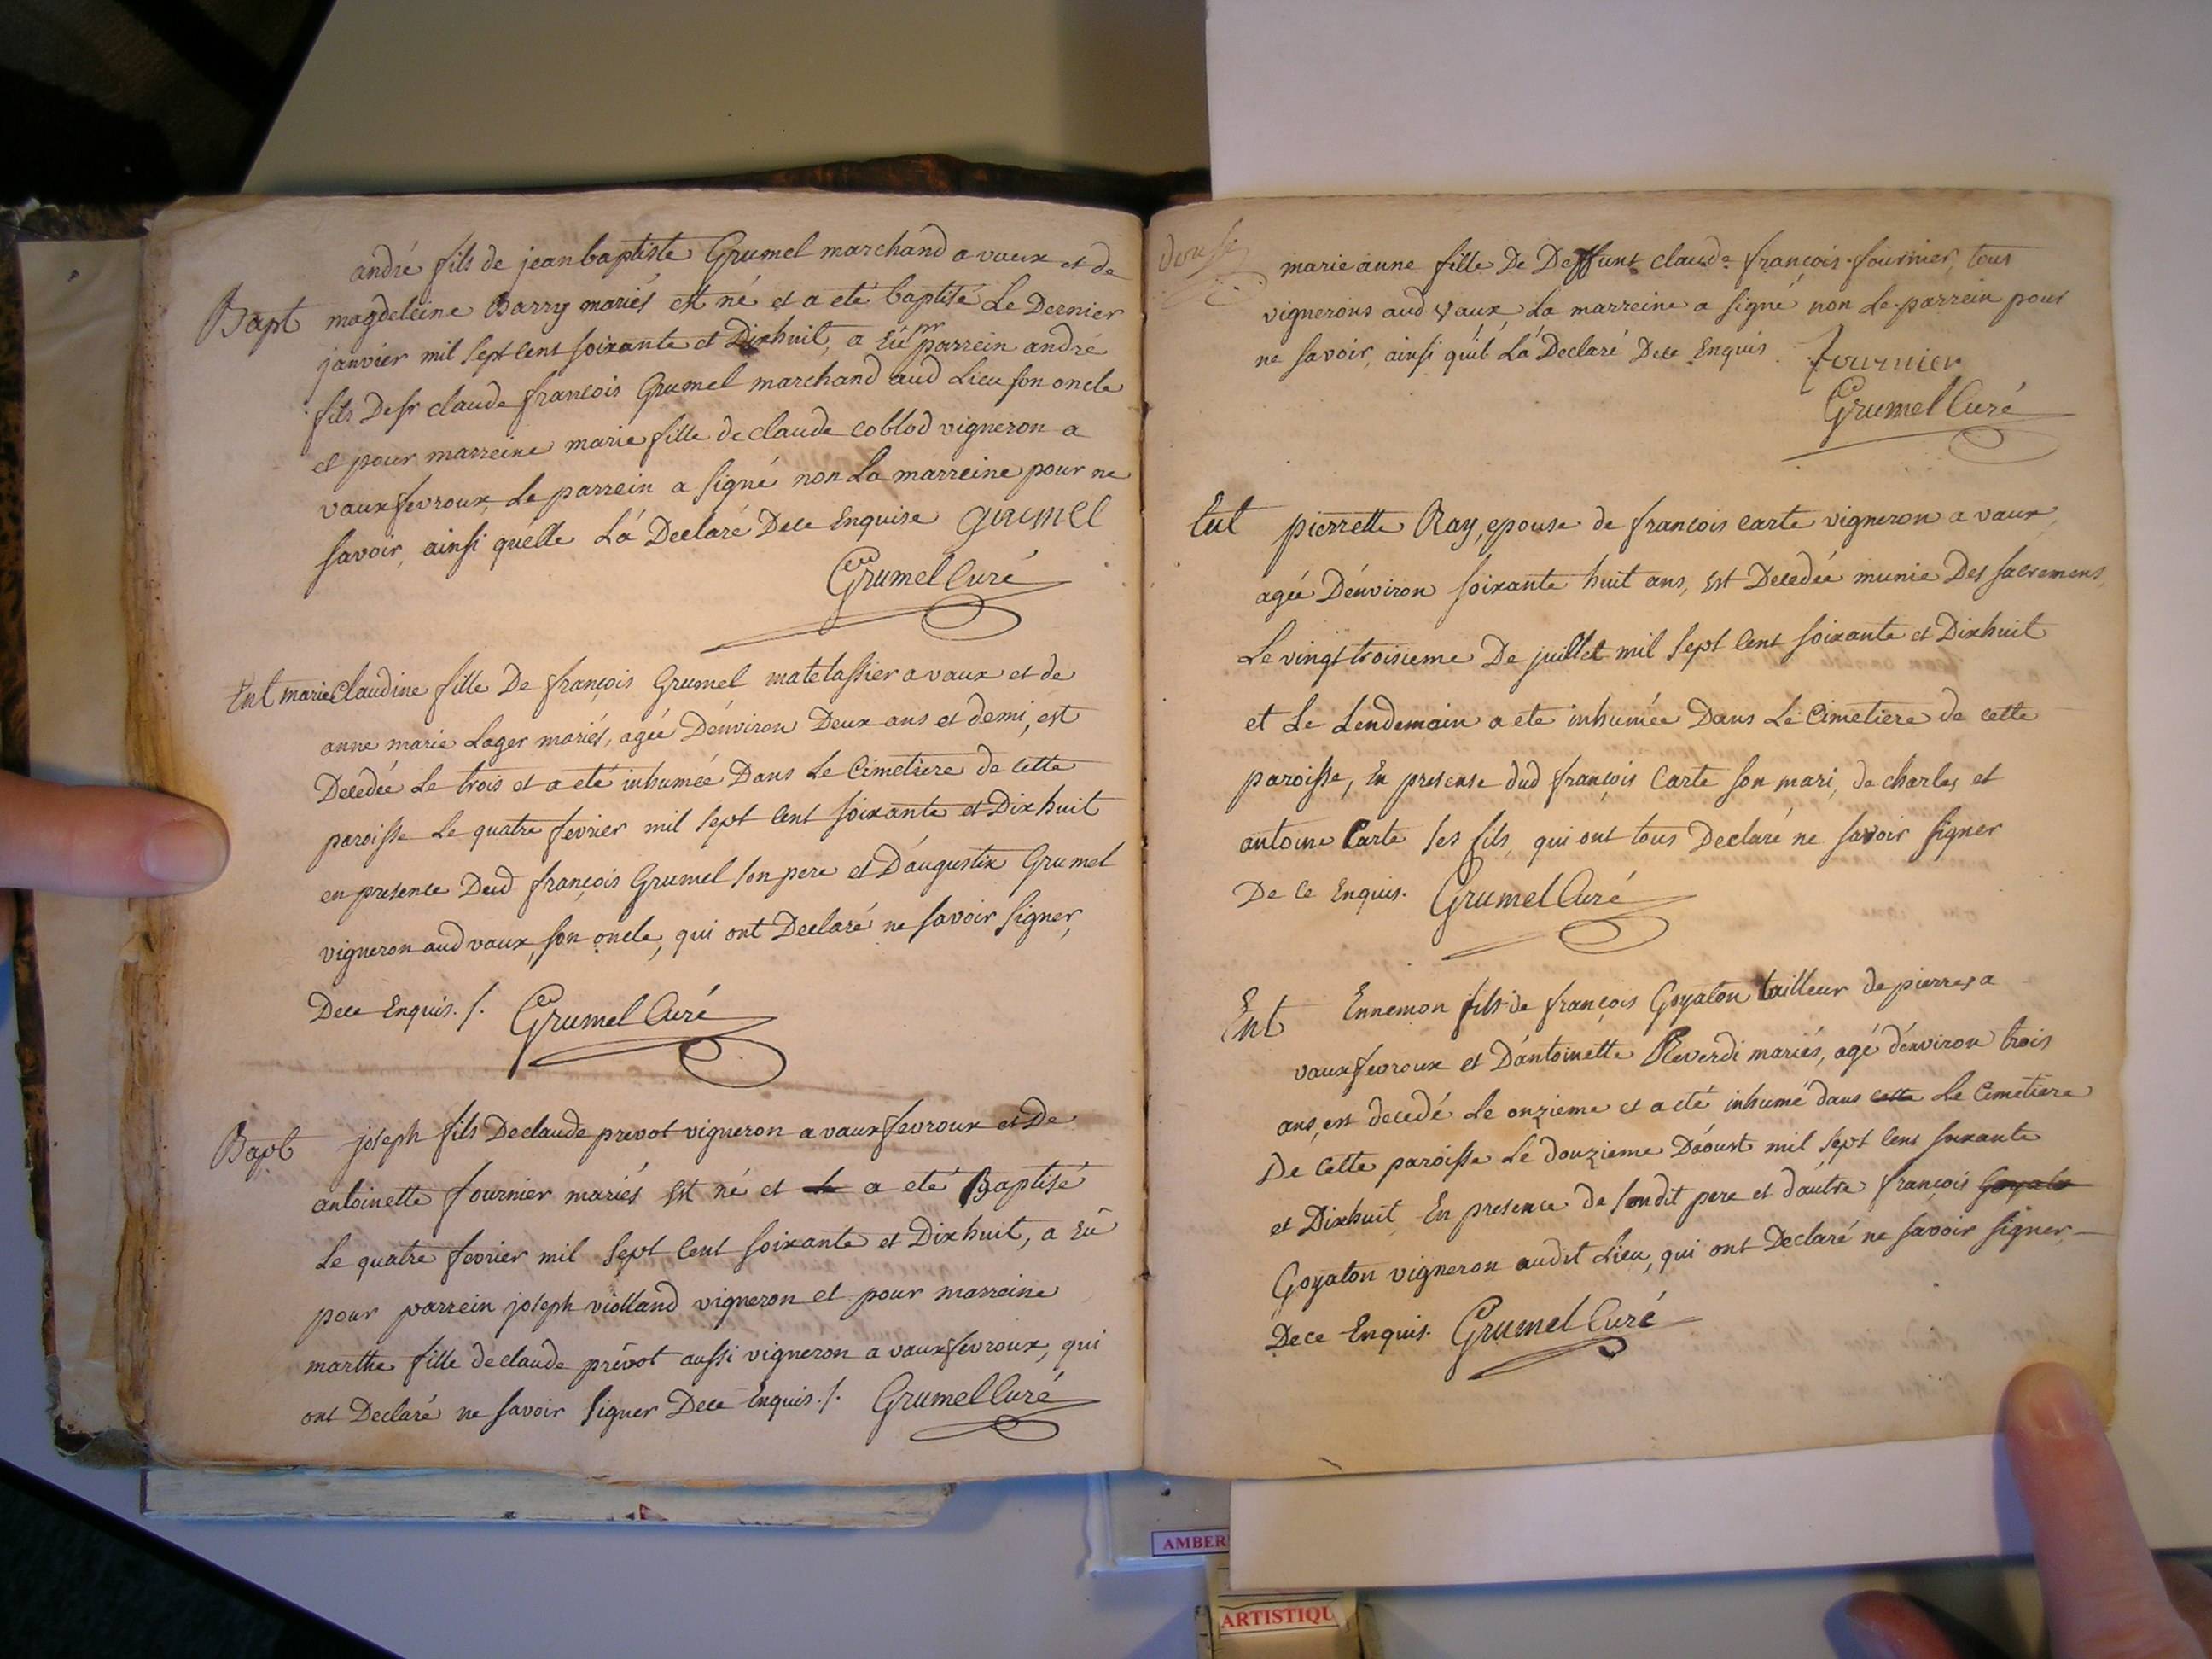 andré fils de jean baptiste Grumel marchand a vaux et de
Bapt magdeleine Barry mariés est né et a eté baptisé Le Dernier
janvier mil sept cent soixante et Dixhuit, a Eû pr parrein andré
fils De sr claude françois Grumel marchand aud Lieu son oncle
et pour marreine marie fille de claude coblod vigneron a
vauxfevroux, Le parrein a signé non La marreine pour ne
savoir, ainsi qu'elle L'a Declaré Dece Enquise Grumel
Grumel Curé
Ent marie Claudine fille De françois Grumel matelassier a vaux et de
anne marie Lager mariés, agée D'environ Deux ans et demi, est
Decedée Le trois et a eté inhumée Dans Le Cimetiere de cette
paroisse Le quatre fevrier mil sept cent soixante et Dixhuit
en presence Dud françois Grumel son pere et D'augustin Grumel
vigneron aud vaux, son oncle, qui ont Declaré ne savoir signer,
Dece Enquis./. Grumel Curé
Bapt joseph fils De claude prevot vigneron a vauxfevroux et De
antoinette fournier mariés est né et a eté Baptisé
Le quatre fevrier mil sept cent soixante et Dixhuit, a Eû
pour parrein joseph violland vigneron et pour marreine
marthe fille de claude prévot aussi vigneron a vauxfevroux, qui
ont Declaré ne savoir signer Dece Enquis./. Grumel Curé
marie anne fille De Deffunt claude françois fournier, tous
vignerons aud vaux La marreine a signé non Le parrein pour
ne savoir, ainsi qu'il L'a Declaré Dece Enquis. fournier
Grumel Curé
Ent pierrette Ray, epouse de françois carte vigneron a vaux
agée D'environ soixante huit ans, est Decedée munie Des sacremens,
Le vingt troisieme De juillet mil sept cent soixante et Dixhuit
et Le Lendemain a ete inhumée Dans Le Cimetiere de cette
paroisse, En presense dud françois Carte son mari, de charles et
antoine Carte ses fils, qui ont tous Declaré ne savoir signer
De ce Enquis. Grumel Curé
Ent Ennemon fils de françois Goyaton tailleur de pierres a
vauxfevroux et D'antoinette Reverdi mariés, agé d'environ trois
ans, est decedé Le onzieme et a eté inhumé dans cette Le Cimetiere
De cette paroisse Le douzieme D'aoust mil sept cent soixante
et Dixhuit, En presence de sondit pere et d'autre françois
Goyaton vigneron audit Lieu, qui ont Declaré ne savoir signer
Dece Enquis. Grumel Curé
AMBER
ARTISTIQU